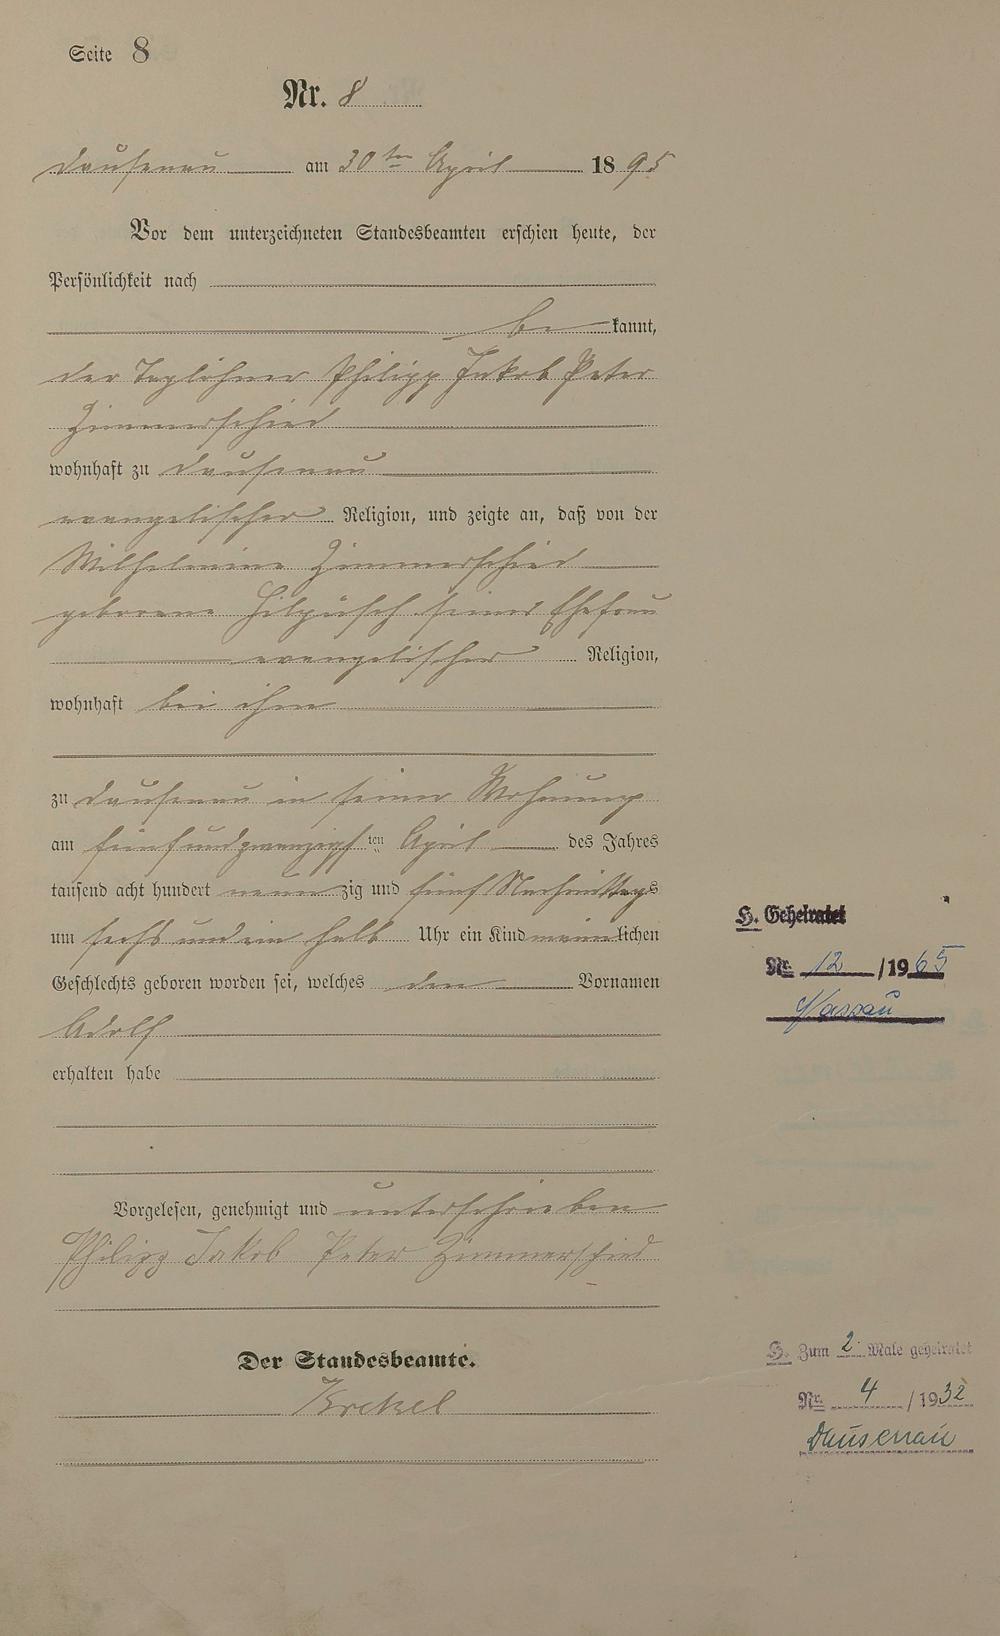 Seite 8
Nr. 8
Dausenau am 30ten April 1895
Vor dem unterzeichneten Standesbeamten erschien heute, der
Persönlichkeit nach
be kannt,
der Taglöhner Philipp Jakob Peter
Zimmerschied
wohnhaft zu Dausenau
evangelischer Religion, und zeigte an, daß von der
Wilhelmine Zimmerschied
geborene Hilpüsch seiner Ehefrau
evangelischer Religion,
wohnhaft bei ihm
zu Dausenau in seiner Wohnung
am fünfundzwanzigsten April des Jahres
tausend acht hundert neunzig und fünf Nachmittags
um sechs und ein halb Uhr ein Kind männlichen
Geschlechts geboren worden sei, welches den Vornamen
Adolf
erhalten habe
Vorgelesen, genehmigt und unterschrieben
Philipp Jakob Peter Zimmerschied
Der Standesbeamte.
H. Geheiratet
Nr. 12 /1965
Nassau
H. Zum 2. Male geheiratet
Nr. 4 /1932
Dausenau